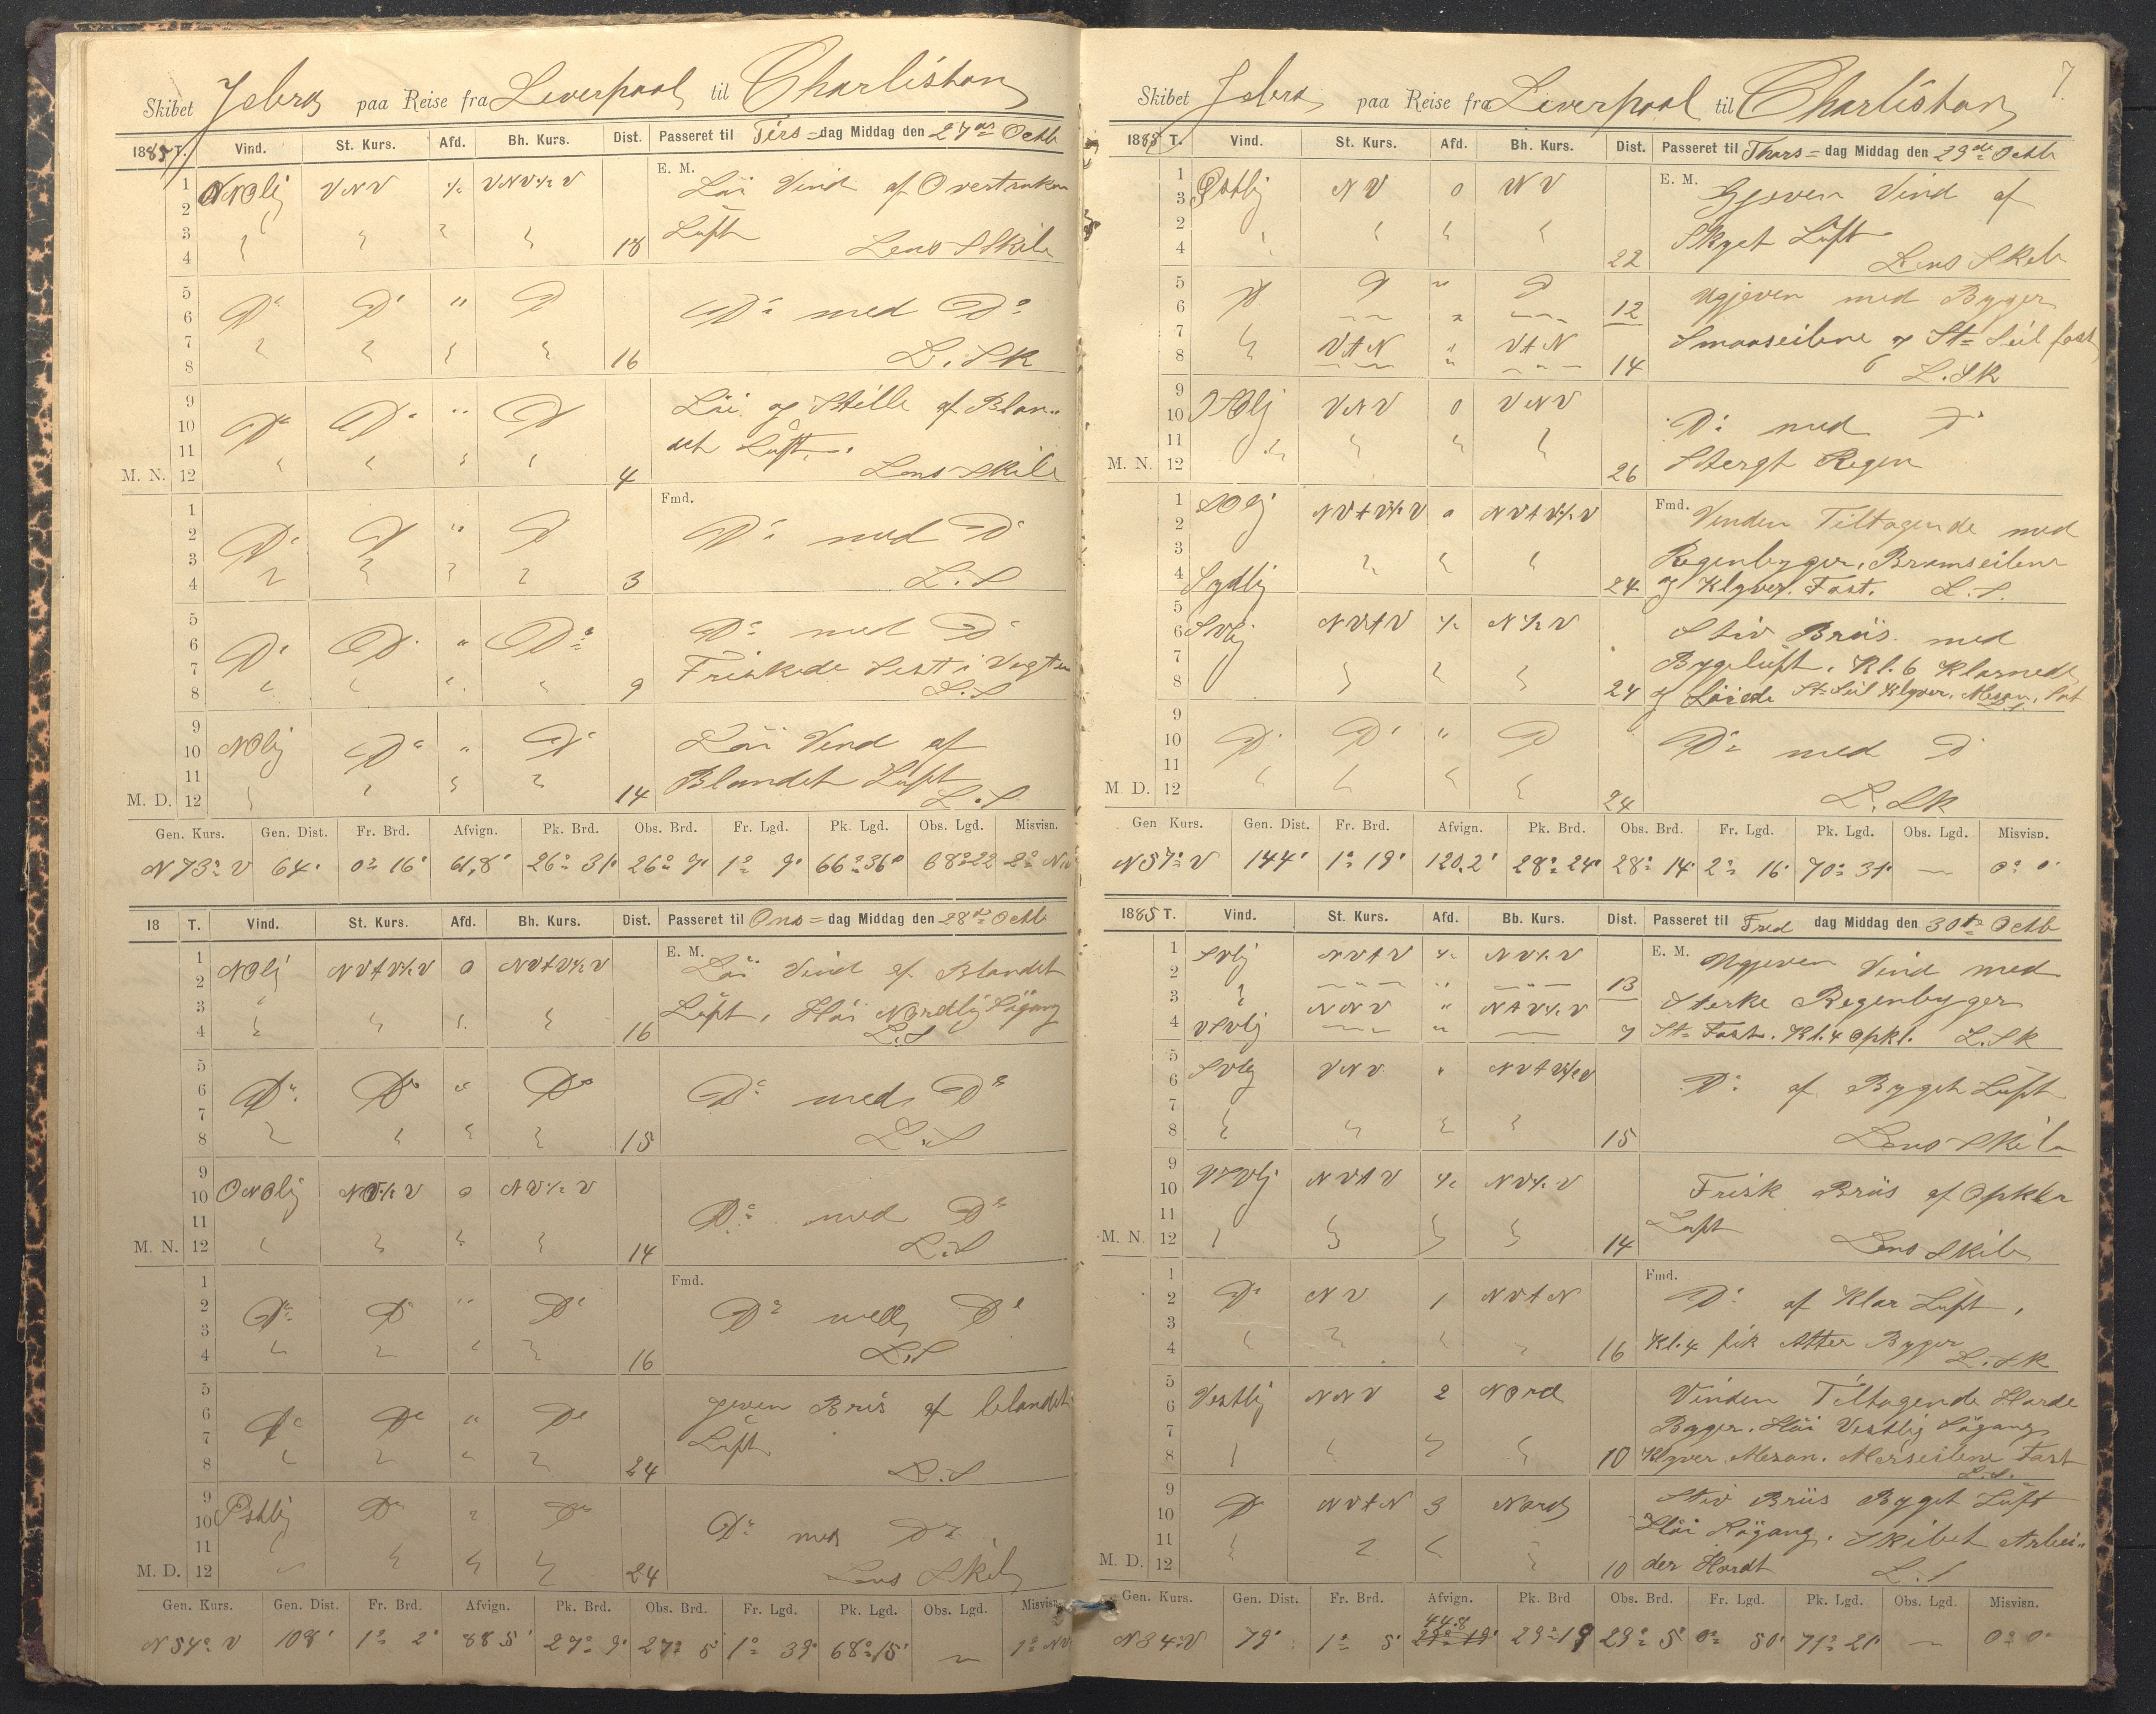 Skibet Jebra paa Reise fra Liverpool til Charliston
1885 T. Vind. St. Kurs. Afd. Bh. Kurs. Dist. Passeret til Tirs=dag Middag den 27de Octb
E. M.
1 NNOlj VNV ½ VNV½V Löi Vind af Overtruken
2
3 Luft
4 18 Lens Skibe
5
6 Do Do " D Do med Do
7
8 16 L. SK
9 Löi og Stille af Blan"
10 Do Do " D
11 det Luft.
M. N. 12 4 Lens Skibe
Fmd.
1
2 Do D " D Do med D
3
4 3 L. S
5
6 Do D " Do Do med D
7 Friskede Sidst i Vagten
8 9 L. S
9
10 NOlj Do " Do Löi Vind af
11 Blandet Luft
M. D. 12 14 L. S
Gen. Kurs. Gen. Dist. Fr. Brd. Afvign. Pk. Brd. Obs. Brd. Fr. Lgd. Pk. Lgd. Obs. Lgd. Misvisn.
N 73° V 64' 0° 16' 61,8' 26° 31' 26° 9' 1° 9' 66° 36' 68° 22 2° NV
18 T. Vind. St. Kurs. Afd. Bh. Kurs. Dist. Passeret til Ons=dag Middag den 28de Octb
E. M.
1 NOlj NVtV½V 0 NVtV½V Löi Vind af Blandet
2
3 Luft, Höi Nordlig Sögang
4 16 L. S
5
6 Do Do " Do Do med Do
7
8 15 L. S
9
10 ONOlj NV½V 0 NV½V Do med Do
11
M. N. 12 14 L. S
Fmd.
1
2 Do Do " Do Do med Do
3
4 16 L. S
5 jeven Bris af blandet
6 Do Do " Do
7 Luft
8 24 L. S
9
10 Östlij Do Do Do med Do
11
M. D. 12 24 Lens Skibe
Gen. Kurs. Gen. Dist. Fr. Brd. Afvign. Pk. Brd. Obs. Brd. Fr. Lgd. Pk. Lgd. Obs. Lgd. Misvisn.
N 54° V 108' 1° 2' 88 5' 27° 9' 27° 5 1° 39' 68° 15' — 1° NV
7.
Skibet Jebra paa Reise fra Liverpool til Charliston
1885 T. Vind. St. Kurs. Afd. Bh. Kurs. Dist. Passeret til Thors=dag Middag den 29de Octb
E. M.
1 Östlij NV 0 NV Gjeven Vind af
3
2 Skyet Luft
4 22 Lens Skib
5 D D " D Ugjeven med Byger
6 12
7 VtN " VtN Smaaseilene og St= Seil fast
8 14 L. SK
9 SOlj VNV 0 VNV
10 Do med Do
11 Stergt Regen
M. N. 12 26
Fmd.
1 SOlj NVtV½V 0 NVtV½V Vinden Tiltagende med
2
3 Regenbyger, Bramseilene
4 Sydlij 24 og Klyver. Fast. L. S.
5
6 SVlj NVtV ½ N½V Stiv Briis med
7 Bygeluft. Kl. 6 Klarnede
8 24 og Löiede St=Seil Klyver, Mesan, Sat
9
10 D Do " D Do med D
11
M. D. 12 24 L. SK
Gen Kurs. Gen. Dist. Fr. Brd. Afvign. Pk. Brd. Obs. Brd. Fr. Lgd. Pk. Lgd. Obs. Lgd. Misvisn.
N 57° V 144' 1° 19' 120,2' 28° 24' 28° 14' 2° 16' 70° 31' — 0° 0'
1885 T. Vind. St. Kurs. Afd. Bb. Kurs. Dist. Passeret til Fred dag Middag den 30te Octb
E. M.
1 SVlj NVtV ½ NV½V Ugjeven Vind med
2 13
3 NNV " NtV½V Sterke Regenbyger
4 VSVlj 7 St= Fast. Kl. 4 Opkl. L. SK
5
6 SVlj VNV " NVtV½V Do af Byget Luft
7
8 15 Lens Skib
9
10 VSVlj NVtV ½ NV½V Frisk Briis af Opklar
11 Luft
M. N. 12 14 Lens Skib
Fmd.
1
2 Do NV 1 NVtN Do af Klar Luft,
3
4 16 Kl. 4 fik Atter Byger L. SK
5 Vinden Tiltagende Harde
6 Vestlij NNV 2 Nord
7 Byger. Höi Vestlig Sögang
8 10 Klyver, Mesan. Merseilene Fast L. S.
9 Stiv Briis Byget Luft
10 D NVtN 3 Nord
11 Höi Sögang. Skibet Arbei"
M. D. 12 10 der Hardt L. S
Gen. Kurs. Gen. Dist. Fr. Brd. Afvign. Pk. Brd Obs. Brd. Fr. Lgd. Pk. Lgd. Obs. Lgd. Misvisn.
N 34° V 79' 1° 5' 44.8 29° 19 29° 5' 0° 50' 71° 21' — 0° 0'